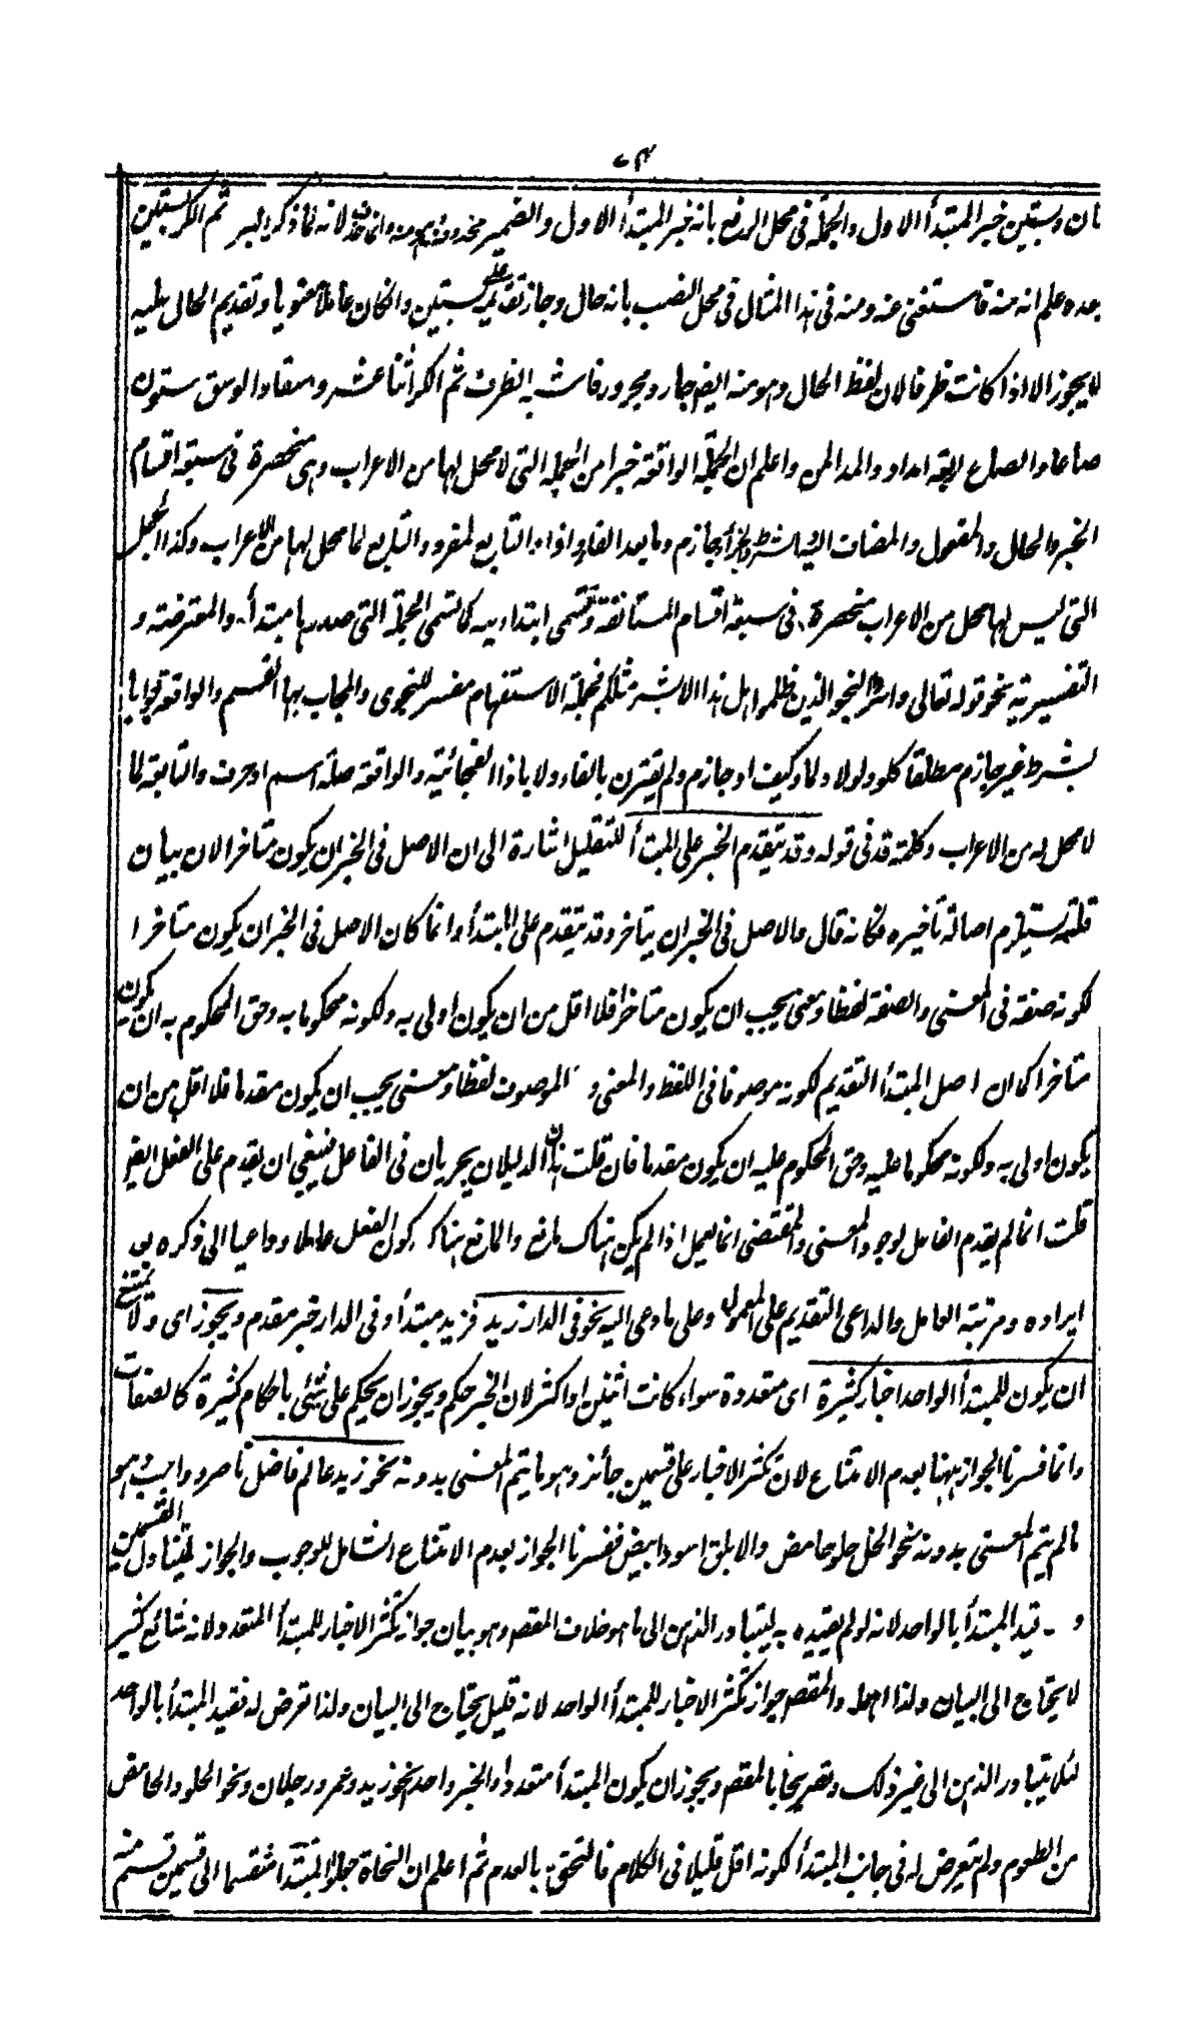 ثان وبستين خبر المبتدأ الاول والجملة فى محل الرفع بانه خبر المبتدأ الاول والضمير محذوف اى منه وانما حذف لانه لما ذكر البر ثم الكر بستين
بعده علم انه منه فاستغنى عنه ومنه فى هذا المثال فى محل النصب بانه حال وجاز تقديمه على بستين وان كان عاملا معنويا وتقديم الحال عليه
لا يجوز الا اذا كانت ظرفا لان لفظ الحال وهو منه ايضا جار ومجرور فاشبه الظرف ثم الكر اثنا عشر وسقا والوسق ستون
صاعا والصاع اربعة امداد والمد المن واعلم ان الجملة الواقعة خبرا من الجملة التى لا محل لها من الاعراب وهى منحصرة فى سبعة اقسام
الخبر والحال والمفعول والمضاف اليها شرط والجزاء جازم وما بعد الفاء واذا والتابع لمفرد والتابع لما محل لها من الاعراب وكذا الجمل
التى ليس لها محل من الاعراب منحصرة فى سبعة اقسام المستانفة وتسمى ابتدائيه كما تسمى الجملة التى صدرها مبتدأ والمعترضة و
التفسيرية نحو قوله تعالى واسروا النجوى الذين ظلموا هل هذا الا بشر مثلكم فجملة الاستفهام مفسر للنجوى والمجاب بها القسم والواقعة جوابا
بشرط غير جازم مطلقا كلو ولولا ولما وكيف او جازم ولم يقترن بالفاء ولا باذا الفجائية والواقعة صلة اسم او حرف والتابعة لما
لا محل له من الاعراب وكلمة قد فى قوله وقد يتقدم الخبر على المبتدأ للتقليل اشارة الى ان الاصل فى الخبر ان يكون متاخرا لان بيان
قلته يستلزم اصالة تأخيره فكانه قال والاصل فى الخبر ان يتاخر وقد يتقدم على المبتدأ وانما كان الاصل فى الخبر ان يكون متاخرا
لكونه صفة فى المعنى والصفة لفظا ومعنى يجب ان يكون متاخرا فلا اقل من ان يكون اولى به ولكونه محكوما به وحق المحكوم به ان يكون
متاخرا كما ان اصل المبتدأ التقديم لكونه موصوفا فى اللفظ والمعنى و الموصوف لفظا ومعنى يجب ان يكون مقدما فلا اقل من ان
يكون اولى به ولكونه محكوما عليه وحق المحكوم عليه ان يكون مقدما فان قلت هذان الدليلان يجريان فى الفاعل فينبغى ان يقدم على الفعل ايضا
قلت انما لم يقدم الفاعل لوجود المعنى والمقتضى انما يعمل اذا لم يكن هناك مانع والمانع هناك كون الفعل عاملا وداعيا الى ذكره بعد
ايراده ومرتبة العامل والداعى التقديم على المعمول وعلى ما دعى اليه نحو فى الدار زيد فزيد مبتدأ وفى الدار خبر مقدم ويجوز اى ولا يمتنع
ان يكون للمبتدأ الواحد اخبار كثيرة اى متعددة سواء كانت اثنين او اكثر لان الخبر حكم ويجوز ان يحكم على شئ باحكام كثيرة كالصفات
وانما فسرنا الجواز ههنا بعدم الامتناع لان تكثر الاخبار على قسمين جائز وهو ما يتم المعنى بدونه نحو زيد عالم فاضل ناصر وواجب وهو
ما لم يتم المعنى بدونه نحو الخل حلو حامض والابلق اسود ابيض ففسرنا الجواز بعدم الامتناع الشامل للوجوب والجواز ليتناول القسمين
و قيد المبتدأ بالواحد لانه لو لم يقيده به ليتبادر الذهن الى ما هو خلاف المقصود وهو بيان جواز تكثر الاخبار للمبتدأ المتعدد ولانه شائع كثير
لا يحتاج الى البيان ولذا اهمله والمقصود جواز تكثر الاخبار للمبتدأ الواحد لانه قليل يحتاج الى البيان ولذا تعرض له فقيد المبتدأ بالواحد
لئلا يتبادر الذهن الى غير ذلك وتصريحا بالمقصود ويجوز ان يكون المبتدأ متعددا والخبر واحد نحو زيد وعمرو رجلان ونحو الحلو والحامض
من الطعوم ولم يتعرض له فى جانب المبتدأ لكونه اقل قليلا فى الكلام فالتحق بالعدم ثم اعلم ان النحاة جعلوا المبتدأ منقسما الى قسمين قسم منه